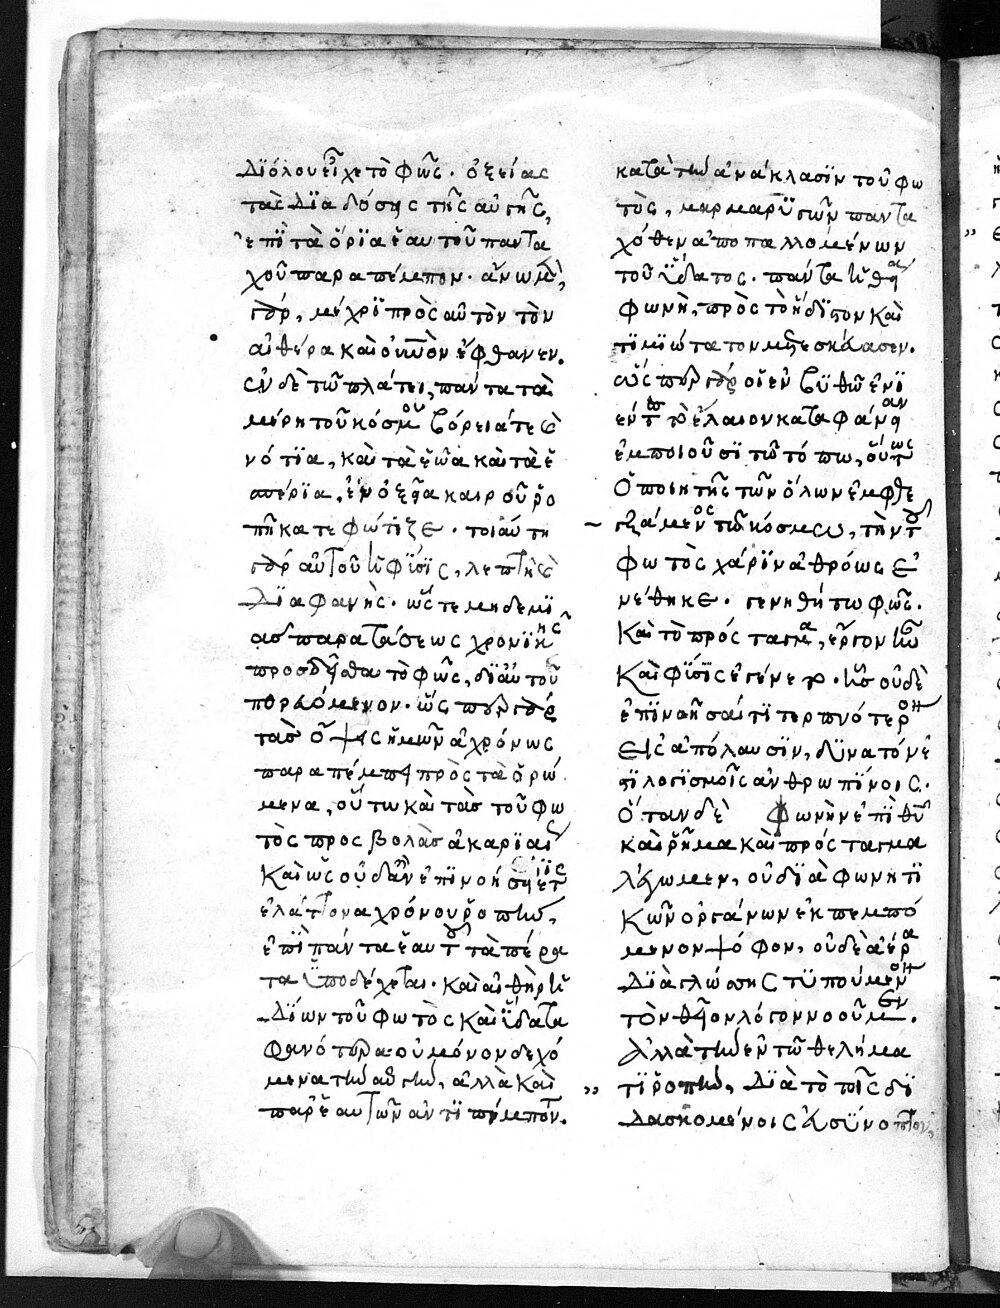 διόλου εἶχε τὸ φῶς. ὀξείας
τὰς διαδόσης τῆς αὐγῆς,
ἐπὶ τὰ ὅρϊα ἑαυτοῦ πάντα
χοῦ παραπέμπον. ἄνω μὲν
γὰρ, μέχρϊ πρὸς αὐτὸν τὸν
αἰθέρα καὶ οὐνὸν ἔφθανεν.
ἐν δὲ τῶ πλάτει, πάντα τὰ
μέρη τοῦ κόσμου βόρειά τε καὶ
νότϊα, καὶ τὰ ἑῶα καὶ τὰ ἑ
σπέρϊα, ἐν ὀξεῖα καιροῦ ῥο
πῆ κατεφώτιζε. τοιαύτη
γὰρ αὐτοῦ ἡ φύσϊς, λεπτὴ καὶ
διαφανὴς. ὥστε μηδεμϊ
ᾶσ παρατάσεως χρονϊκῆς
προσδεῖσθαι τὸ φῶς, δϊ αὐτοῦ
πορευόμενον. ὥσπερ γὰρ
τὰσ ὄψεις ἡμῶν ἀχρόνως
παραπέμπει πρὸς τὰ ὁρώ
μενα, οὕτω καὶ τὰσ τοῦ φω
τὸς προσβολὰσ ἀκαρϊαί
καὶ ὡς οὐδ' ἂν ἐπϊνοήσῃ τις
ἐλάττονα χρόνου ῥοπὴν,
ἐπὶ πάντα ἑαυτοῦ τὰ πέρα
τα ὑποδέχεται. καὶ αἰθὴρ ἡ
δίων τοῦ φωτὸς καὶ ὕδατα
φανότερα. οὐ μόνον δεχό
μενα τὴν αὐγὴν, ἀλλὰ καὶ
παρ' ἑαυτῶν ἀντϊπέμποντα.
κατὰ τὴν ἀνάκλασϊν τοῦ φω
τὸς, μαρμαρυγῶν παντα
χόθεν ἀποπαλλομένων
τοῦ ὕδατος. πάντα ἡ θεία
φωνὴ, πρὸς τὸ ἥδϊστον καὶ
τϊμϊώτατον μετεσκεύασεν.
ὥσπερ γὰρ οἱ ἐν βυθῶ ἐνϊ
έντες τὸ ἔλαιον καταφάνειαν
ἐμποιοῦσϊ τῶ τόπω, οὕτως
ὁ ποιητὴς τῶν ὅλων ἐμφθε
γξάμενος τῶ κόσμω, τὴν τοῦ
φωτὸς χάρϊν ἀθρόως ἐ
νέθηκε. γενηθήτω φῶς.
Καὶ τὸ πρόσταγμα, ἔργον ἦν
Καὶ φύσϊς ἐγένετο. ἧσ οὐδὲ
ἐπϊνοῆσαί τϊ τερπνότερον
εἰς ἀπόλαυσϊν, δυνατόν ἐ
στϊ λογϊσμοῖς ἀνθρωπίνοις.
Ὅταν δὲ Φωνὴν ἐπὶ θεοῦ
καὶ ῥῆμα καὶ πρόσταγμα
λέγωμεν, οὐ δϊὰ φωνητϊ
κῶν ὀργάνων ἐκπεμπό
μενον ψόφον, οὐδὲ ἀέρα
διὰ γλώσσης τυπούμενον
τὸν θεῖον λόγον νοοῦμεν.
Ἀλλὰ τὴν ἐν τῶ θελήμα
τϊ ῥοπὴν, διὰ τὸ τοῖς δϊ
δασκομένοις εὐσύνοπτον,